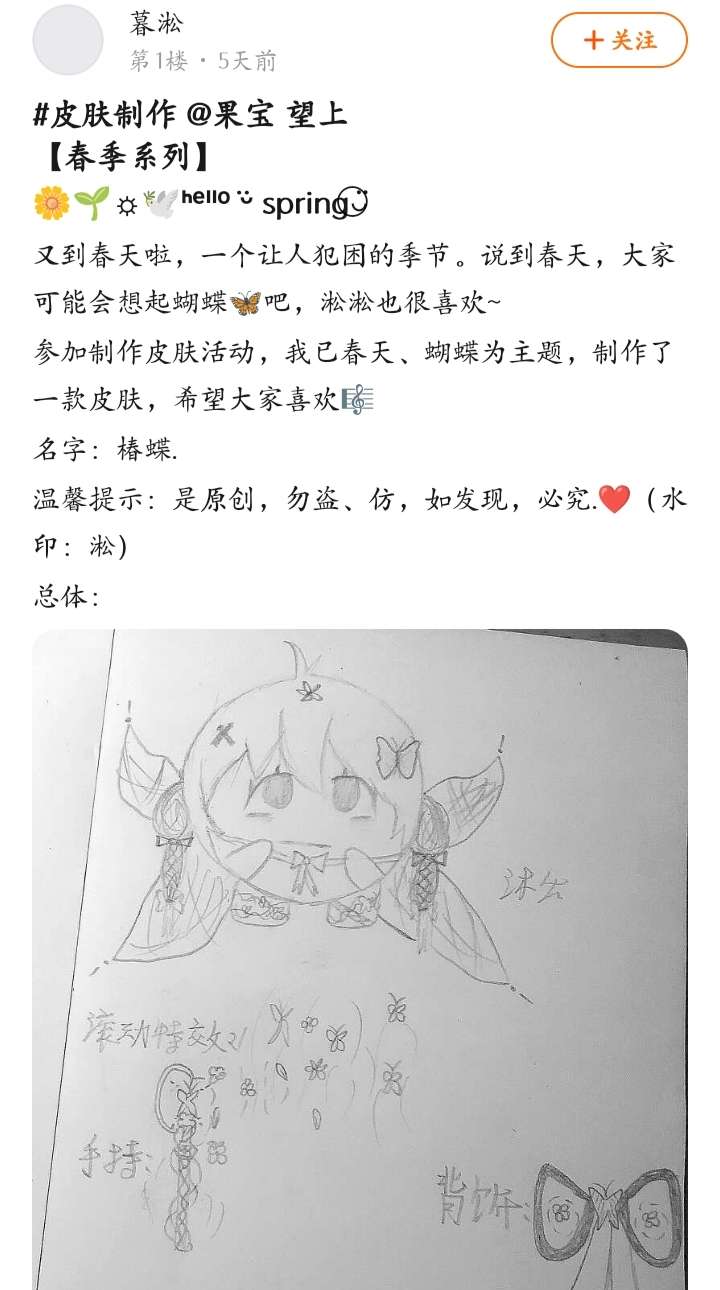 暮淞
第1楼 · 5天前
＋关注
#皮肤制作 @果宝 望上
【春季系列】
🌼🌱☼🕊️ʰᵉˡˡᵒ ᵕ̈ spring
又到春天啦，一个让人犯困的季节。说到春天，大家
可能会想起蝴蝶🦋吧，淞淞也很喜欢~
参加制作皮肤活动，我已春天、蝴蝶为主题，制作了
一款皮肤，希望大家喜欢🎼
名字：椿蝶.
温馨提示：是原创，勿盗、仿，如发现，必究.❤️（水
印：淞）
总体：
滚动特效
手持：
背饰：